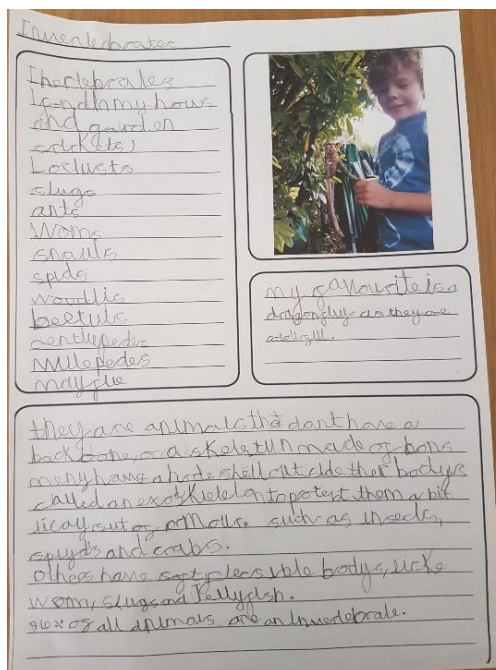 Invertebrates
Inertebrales
I fondinmy hous
and garden
crickets,
Locusts
slugs
ants
Woms
snauls
spids
woodlis
beetuls
centlepedes
millepedes
mayflie
my favourite is a
dragonfly as they are
they are animals that dont have a
backbone, or a skeletun made of bons
meny have a harde shell out side ther bodys
called an exoskleleton to potect them a bit
licay sut of armour. such as insects,
spyds and crabs.
others have soft flecsible bodys, licke
wom, slugs and Jellyfish.
96% of all animals are an Inverdebrate.